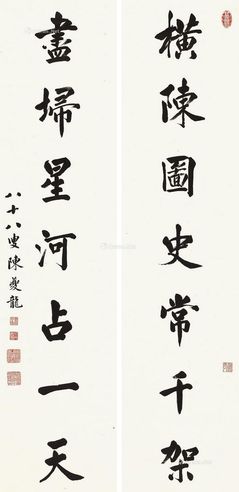 橫陳圖史常千架
盡掃星河占一天
八十八叟陳夔龍